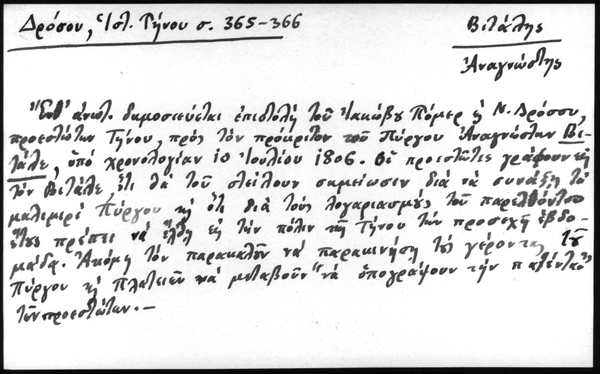 Δρόσου, Ἱστ. Τήνου σ. 365-366
Βιτάλης
Ἀναγνώστης
Ἔνθ' ἀνωτ. δημοσιεύεται ἐπιστολὴ τοῦ Ἰακώβου Πόμερ ἢ Ν. Δρόσσου,
προεστώτων Τήνου, πρὸς τὸν πρόκριτον τοῦ Πύργου Ἀναγνώστην Βι-
τάλε, ὑπὸ χρονολογίαν 10 Ἰουλίου 1806. Οἱ προεστῶτες γράφουν εἰς
τὸν Βιτάλε, ὅτι θὰ τοῦ στείλουν σημείωσιν διὰ νὰ συνάξῃ τὸ
μαλιμιρὶ Πύργου κὶ ὅτι διὰ τοὺς λογαριασμοὺς τοῦ παρελθόντος
ἔτους πρέπει νὰ ἔλθῃ εἰς τὴν πόλιν τῆς Τήνου τὴν προσεχῆ ἑβδο-
μάδα. Ἀκόμη τὸν παρακαλοῦν νὰ παρακινήσῃ τοὺς γέροντας τοῦ
Πύργου κὶ Πλατειῶν νὰ μεταβοῦν "νὰ ὑπογράψουν τὴν πατέντα"
τῶν προεστώτων.—